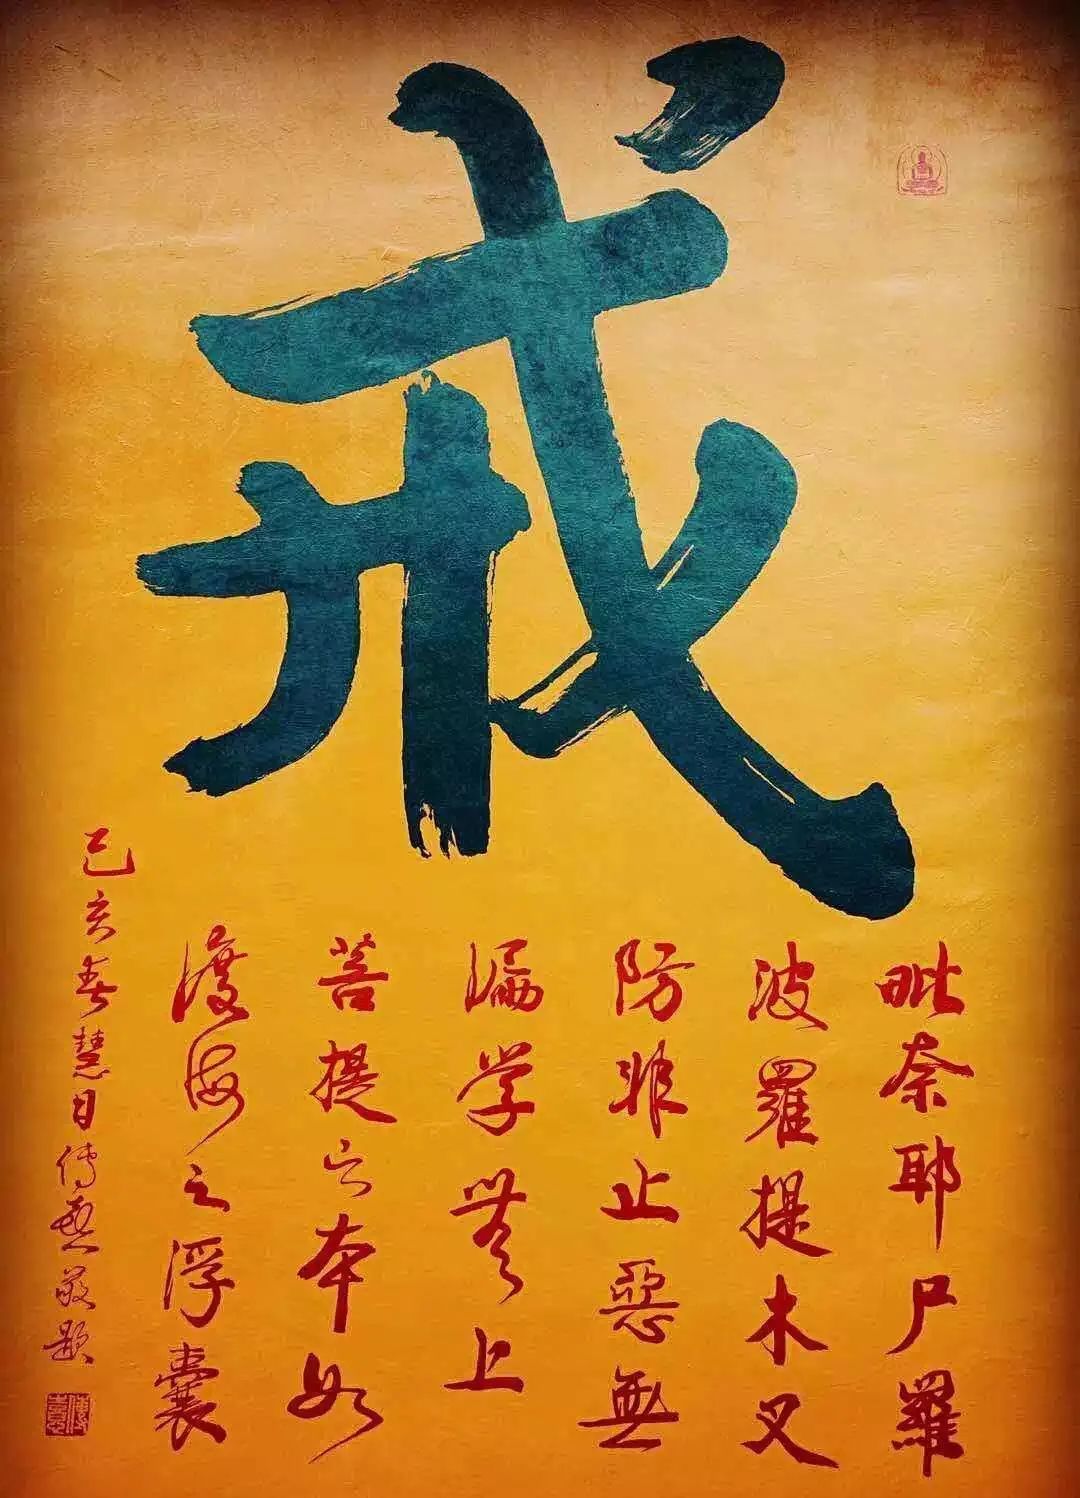 戒
毗奈耶尸羅
波羅提木叉
防非止惡無
漏学無上
菩提之本如
渡海之浮囊
己亥春慧日傳喜敬題
傳喜